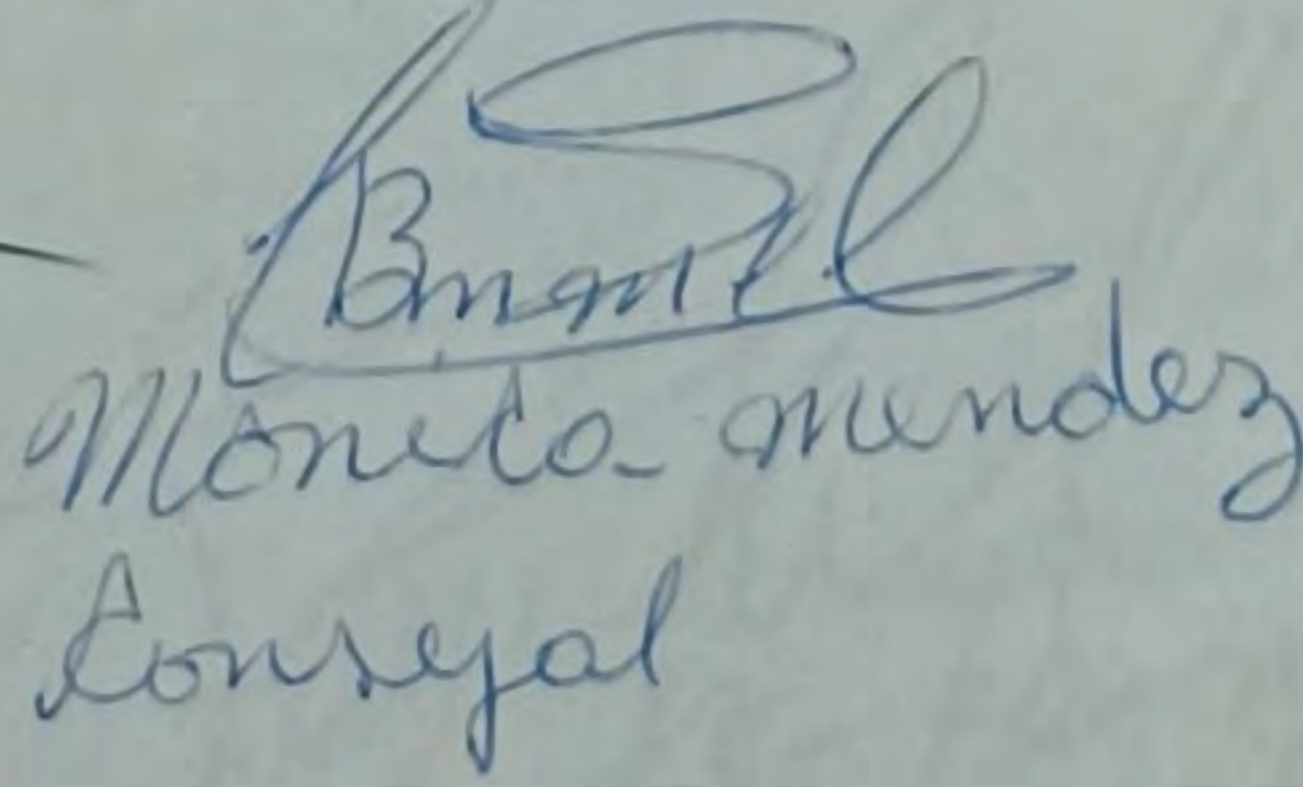 Mónica mendez
Consejal